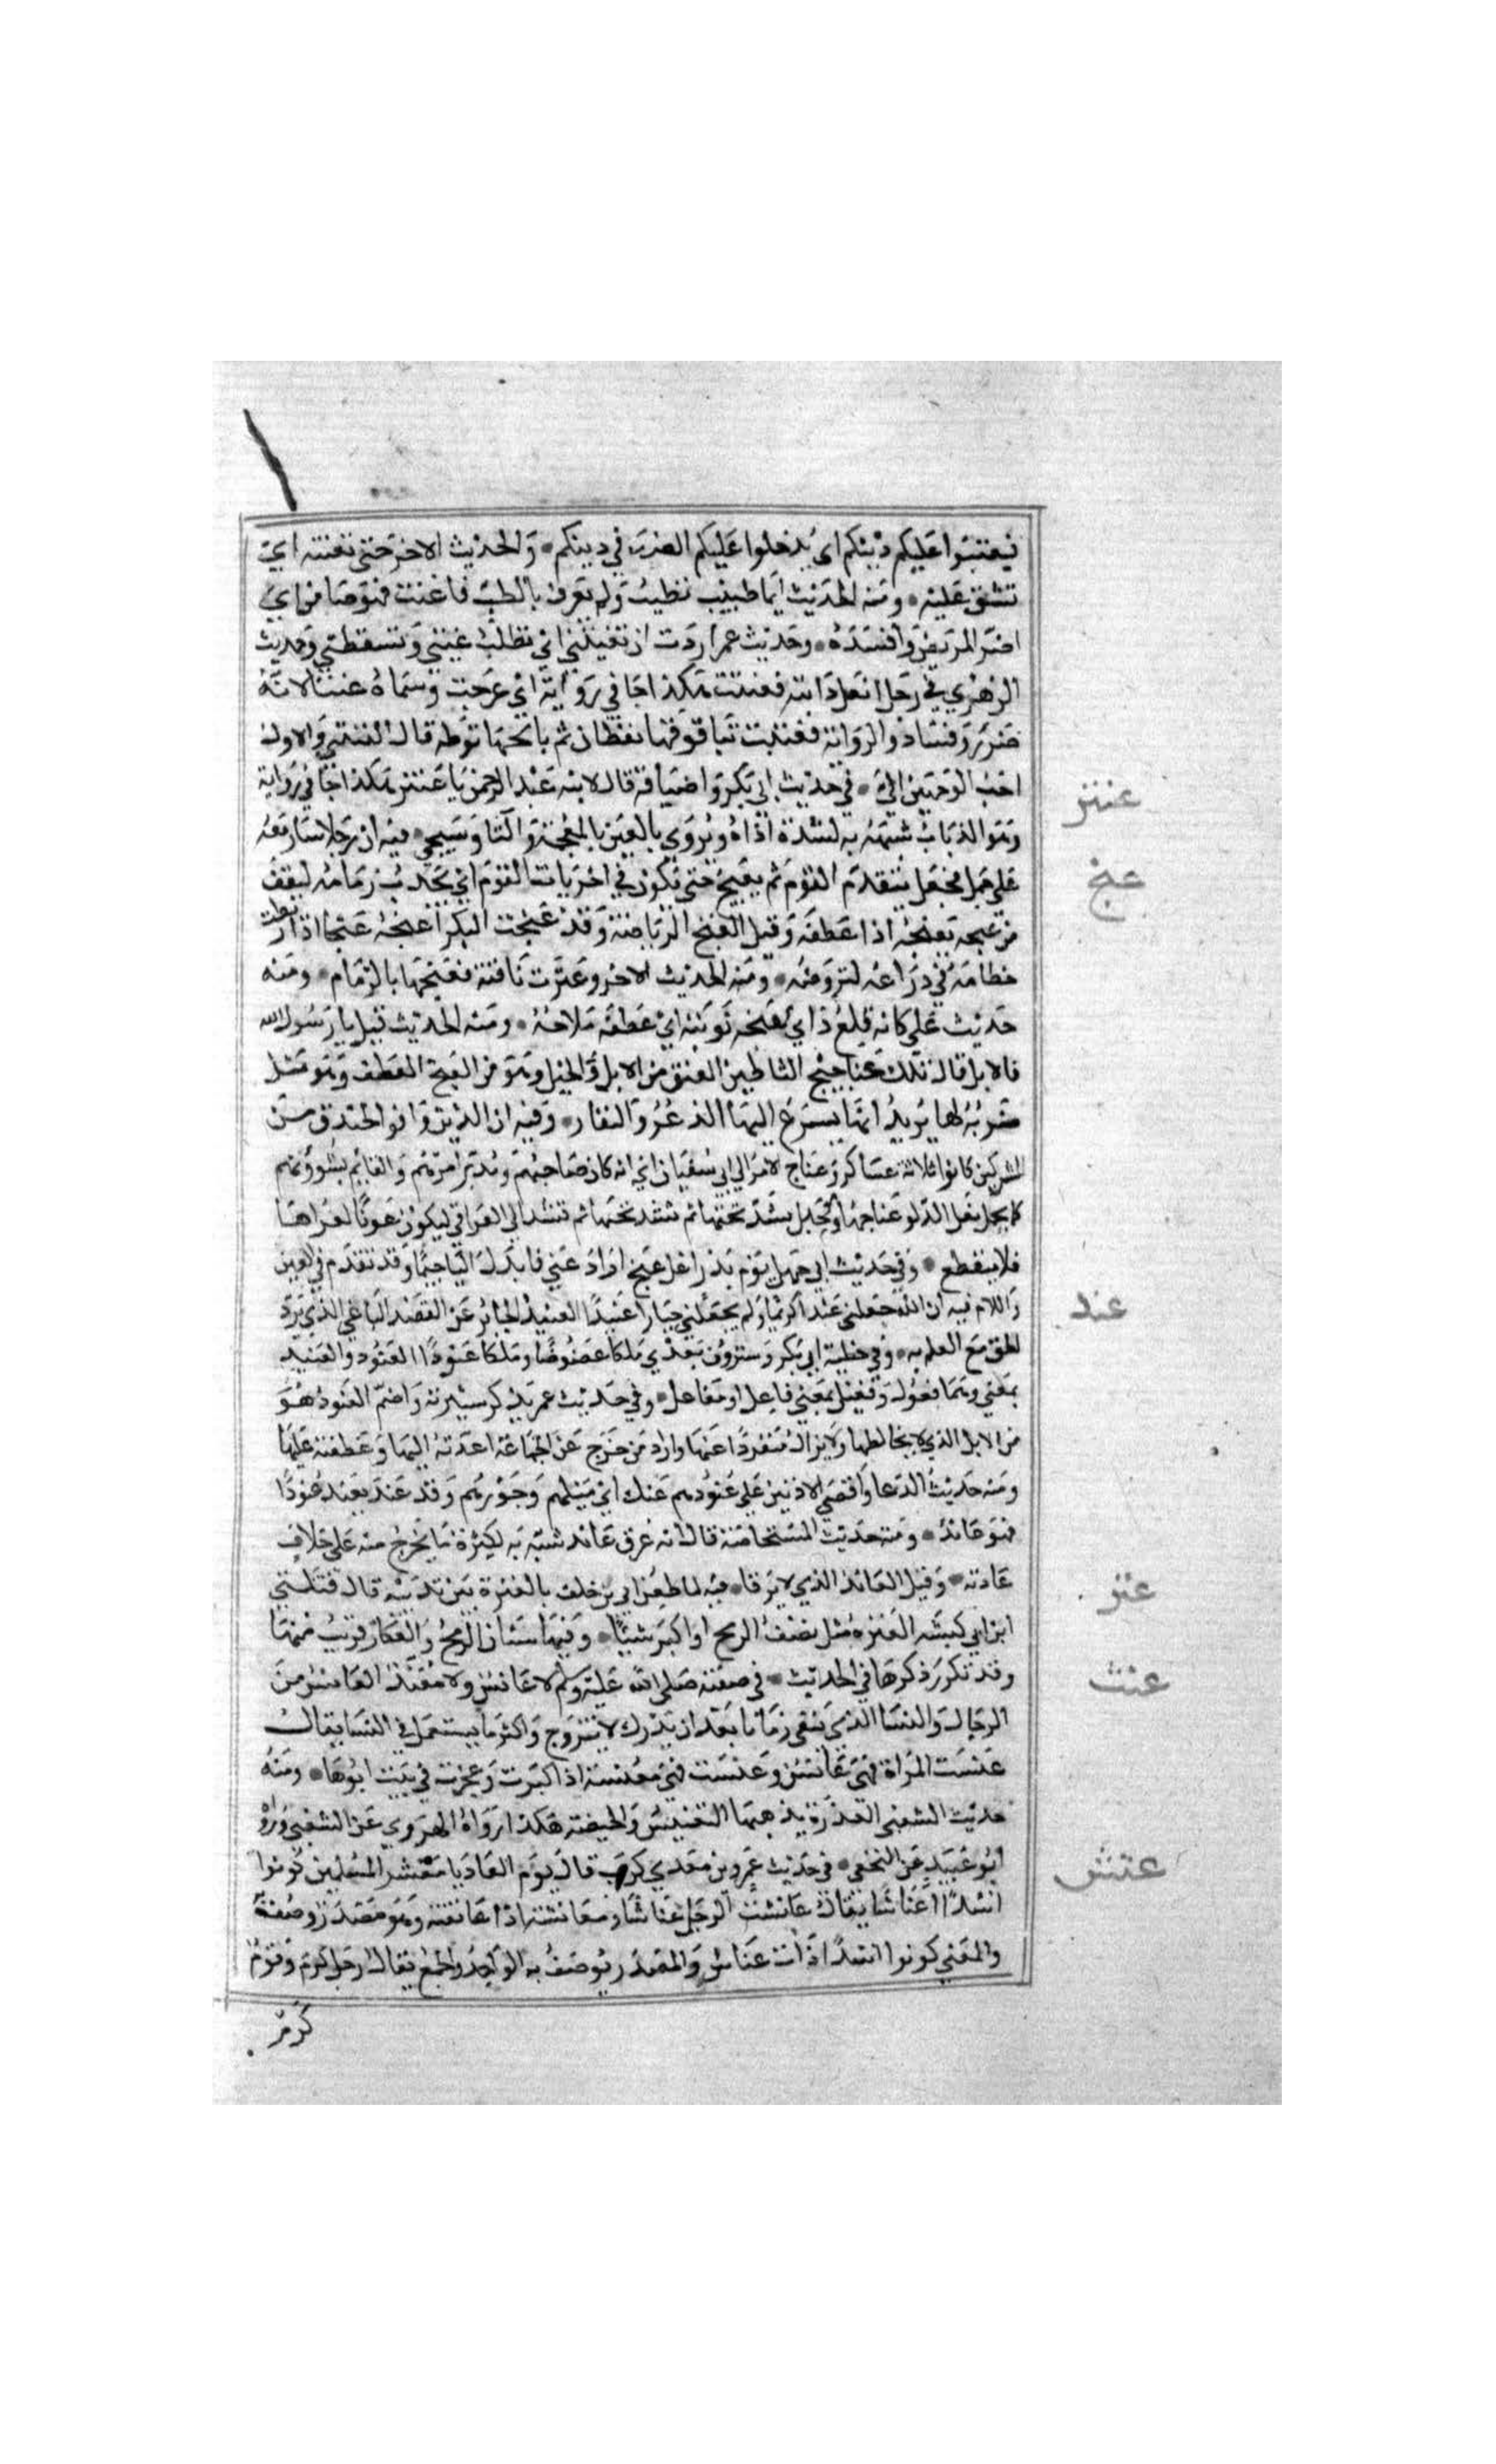 فيعنتوا عليكم دينكم اي يدخلوا عليكم الضرر في دينكم والحديث الاخر حتي تعنته اي
تشق عليه ومنه الحديث ايما طبيب تطبب ولم يعرف بالطب فاعنت فهو ضامن اي
اضر المريض وافسده وحديث عمر اردت ان تعنتني اي تطلب عنتي وتسقطني وحديث
الزهري في رجل انعل دابته فعنتت هكذا جا في رواية اي عرجت وسماه عنتا لانه
ضرر وفساد والرواية فعتبت بتا فوقها نقطتان ثم با تحتها نقطة قال القتيبي والاول
احب الوجهين الي في حديث ابي بكر واضيافه قال لابنه عبد الرحمن يا عنتر هكذا جا في رواية
وهو الذباب شبهه به لشدة اذاه ويروي بالغين المعجمة والثا وسيجي فيه ان رجلا سار معه
علي جمل فجعل يتقدم القوم ثم يعنجه حتي يكون في اخريات القوم اي يجذب زمامه ليقف
من عنجه يعنجه اذا عطفه وقيل العنج الرياضة وقد عنجت البكر اعنجه عنجا اذا ربطت
خطامه في ذراعه لتروضه ومنه الحديث الاخر وعثرت ناقته فعنجها بالزمام ومنه
حديث علي كانه قلع داري عنجه نوتيه اي عطفه ملاحه ومنه الحديث قيل يا رسول الله
فالابل قال تلك عناجيج الشاطين العنق من الابل والخيل وهو من العنج العطف وهو مثل
ضربه لها يريد انها يسرع اليها الذعر والنفار وفيه ان الذين وافوا الخندق من
المشركين كانوا ثلاثة عساكر وعناج الامر الي ابي سفيان اي انه كان صاحبهم ومدبر امرهم والقايم بشوونهم
كما يحمل ثقل الدلو عناجها وهو حبل يشد تحتها ثم تشد الي العراقي ليكون عونا لعراها
فلا ينقطع وفي حديث ابي جهل يوم بدر اعل عنج اراد عني فابدل اليا جيما وقد تقدم في العين
واللام فيه ان الله جعلني عبدا كريما ولم يجعلني جبارا عنيدا العنيد الجاير عن القصد الباغي الذي يرد
الحق مع العلم به وفي خطبة ابي بكر وسترون بعدي ملكا عضوضا وملكا عنودا العنود والعنيد
بمعني وهما فعول وفعيل بمعني فاعل او مفاعل وفي حديث عمر يذكر سيرته واضم العنود هو
من الابل الذي لا يخالطها ولا يزال منفردا عنها واراد من خرج عن الجماعة اعدته اليها وعطفته عليها
ومنه حديث الدعا واقصي الادنين علي عنودهم عنك اي ميلهم وجورهم وقد عند يعند عنودا
فهو عاند ومنه حديث المستحاضة قال انه عرق عاند شبه به لكثرة ما يخرج منه علي خلاف
عادته وقيل العاند الذي لا يرقا فيه لما طعن ابي بن خلف بالعنزة بين ثدييه قال قتلني
ابن ابي كبشه العنزه مثل نصف الرمح او اكبر شيئا وفيها سنان الرمح والعكاز قريب منها
وقد تكرر ذكرها في الحديث في صفته صلي الله عليه وسلم لا عانس ولا مفند العانس من
الرجال والنسا الذي يبقي زمانا بعد ان يدرك لا يتزوج واكثر ما يستعمل في النسا يقال
عنست المراة فهي عانس وعنست فهي معنسة اذا كبرت وعجزت في بيت ابوها ومنه
حديث الشعبي العذرة يذهبها التعنيس والحيضه هكذا رواه الهروي عن الشعبي ورواه
ابو عبيد عن النخعي في حديث عمرو بن معدي كرب قال يوم القادسية يا معشر المسلمين كونوا
اسدا عناشا يقال عانشت الرجل عناشا ومعانشة اذا عانقته وهو مصدر وصف به
والمعني كونوا اسدا ذات عناش والمصدر يوصف به الواحد والجمع يقال رجل كرم وقوم
كرم
عنتر
عنج
عند
عنز
عنش